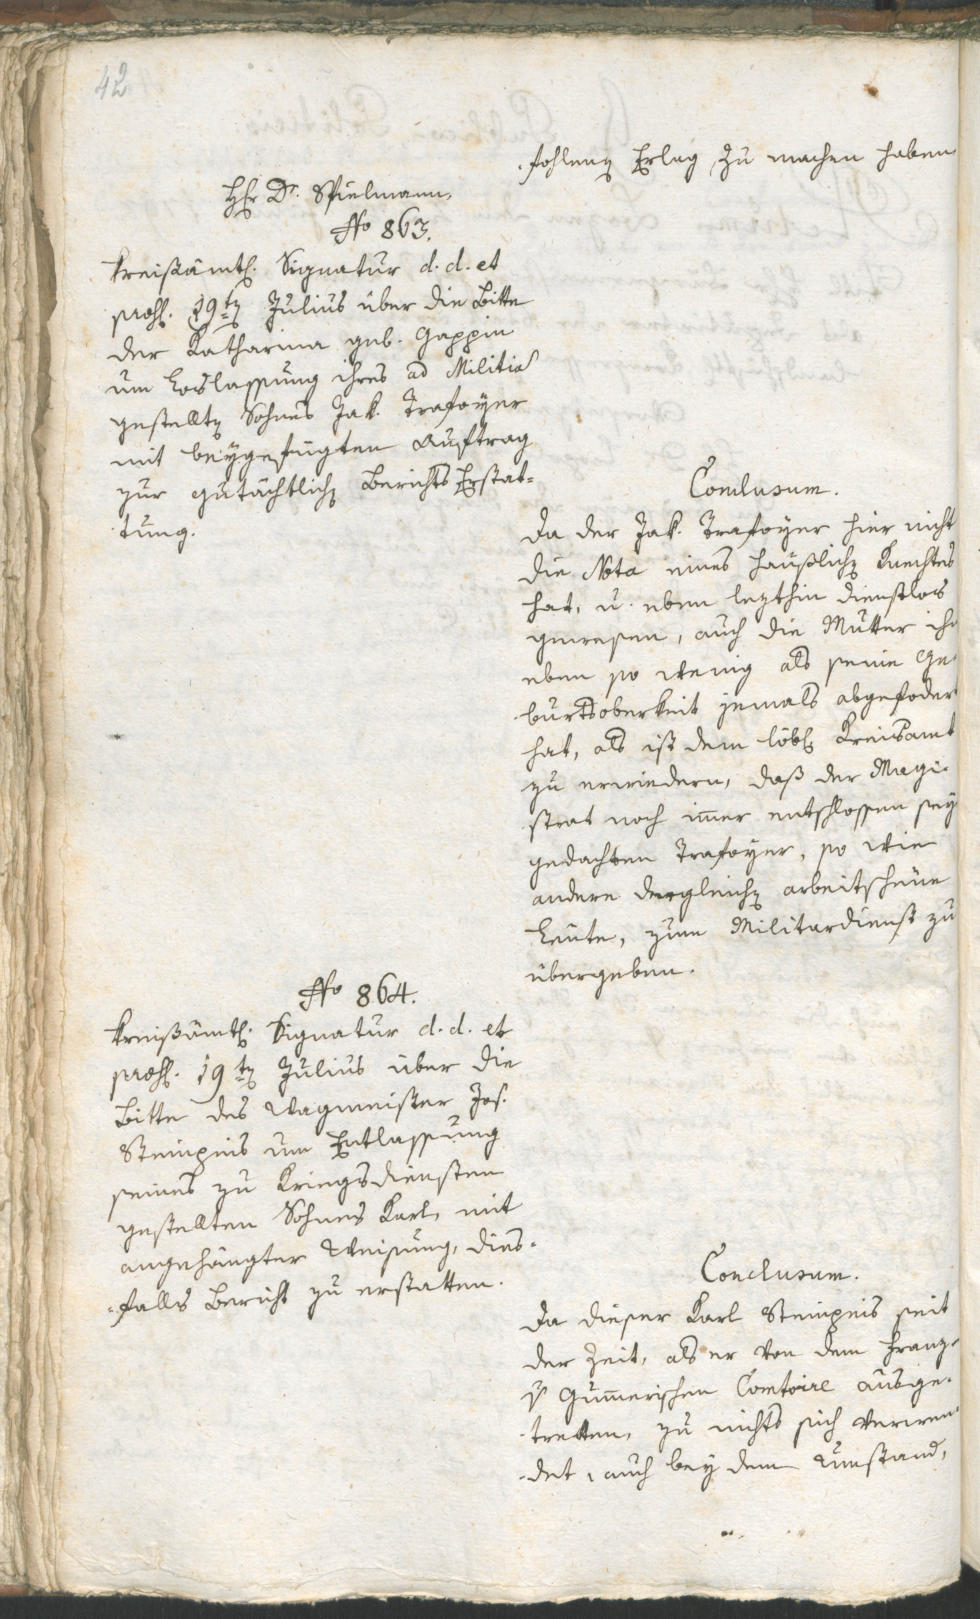 42
fohlenen Erlag zu machen haben
Hr Dr. Spielmann.
No 863.
Kreißämtl. Signatur d. d. et
praes. 19ten Julius über die Bitte
der Katharina geb. Gappin
um Loslassung ihres ad Militiam
gestellten Sohnes Jak. Trafoyer
mit beygefügten Auftrag
zur gutächtlichen Berichts Erstat-
tung.
Conclusum.
Da der Jak. Trafoyer hier nicht
die Nota eines häußlichen Knechtes
hat, u. eben lezthin dienstlos
gewesen, auch die Mutter ihn
eben so wenig als seine Ge-
burtsoberkeit jemals abgefodert
hat, als ist dem löbl. Kreisamt
zu erwiedern, daß der Magi-
strat noch immer entschlossen sey
gedachten Trafoyer, so wie
andere dergleichen arbeitscheue
Leute, zum Militardienst zu
übergeben.
No 864.
Kreißämtl. Signatur d. d. et
praes. 19ten Julius über die
Bitte des Wagmeister Jos.
Steinpeis um Entlassung
seines zu Kriegsdiensten
gestellten Sohnes Karl, mit
angehängter Weisung, dies-
falls Bericht zu erstatten.
Conclusum.
Da dieser Karl Steinpeis seit
der Zeit, als er von dem Franz
v Gumerischen Comtoire ausge-
tretten, zu nichts sich verwen-
det, auch bey dem Umstand,